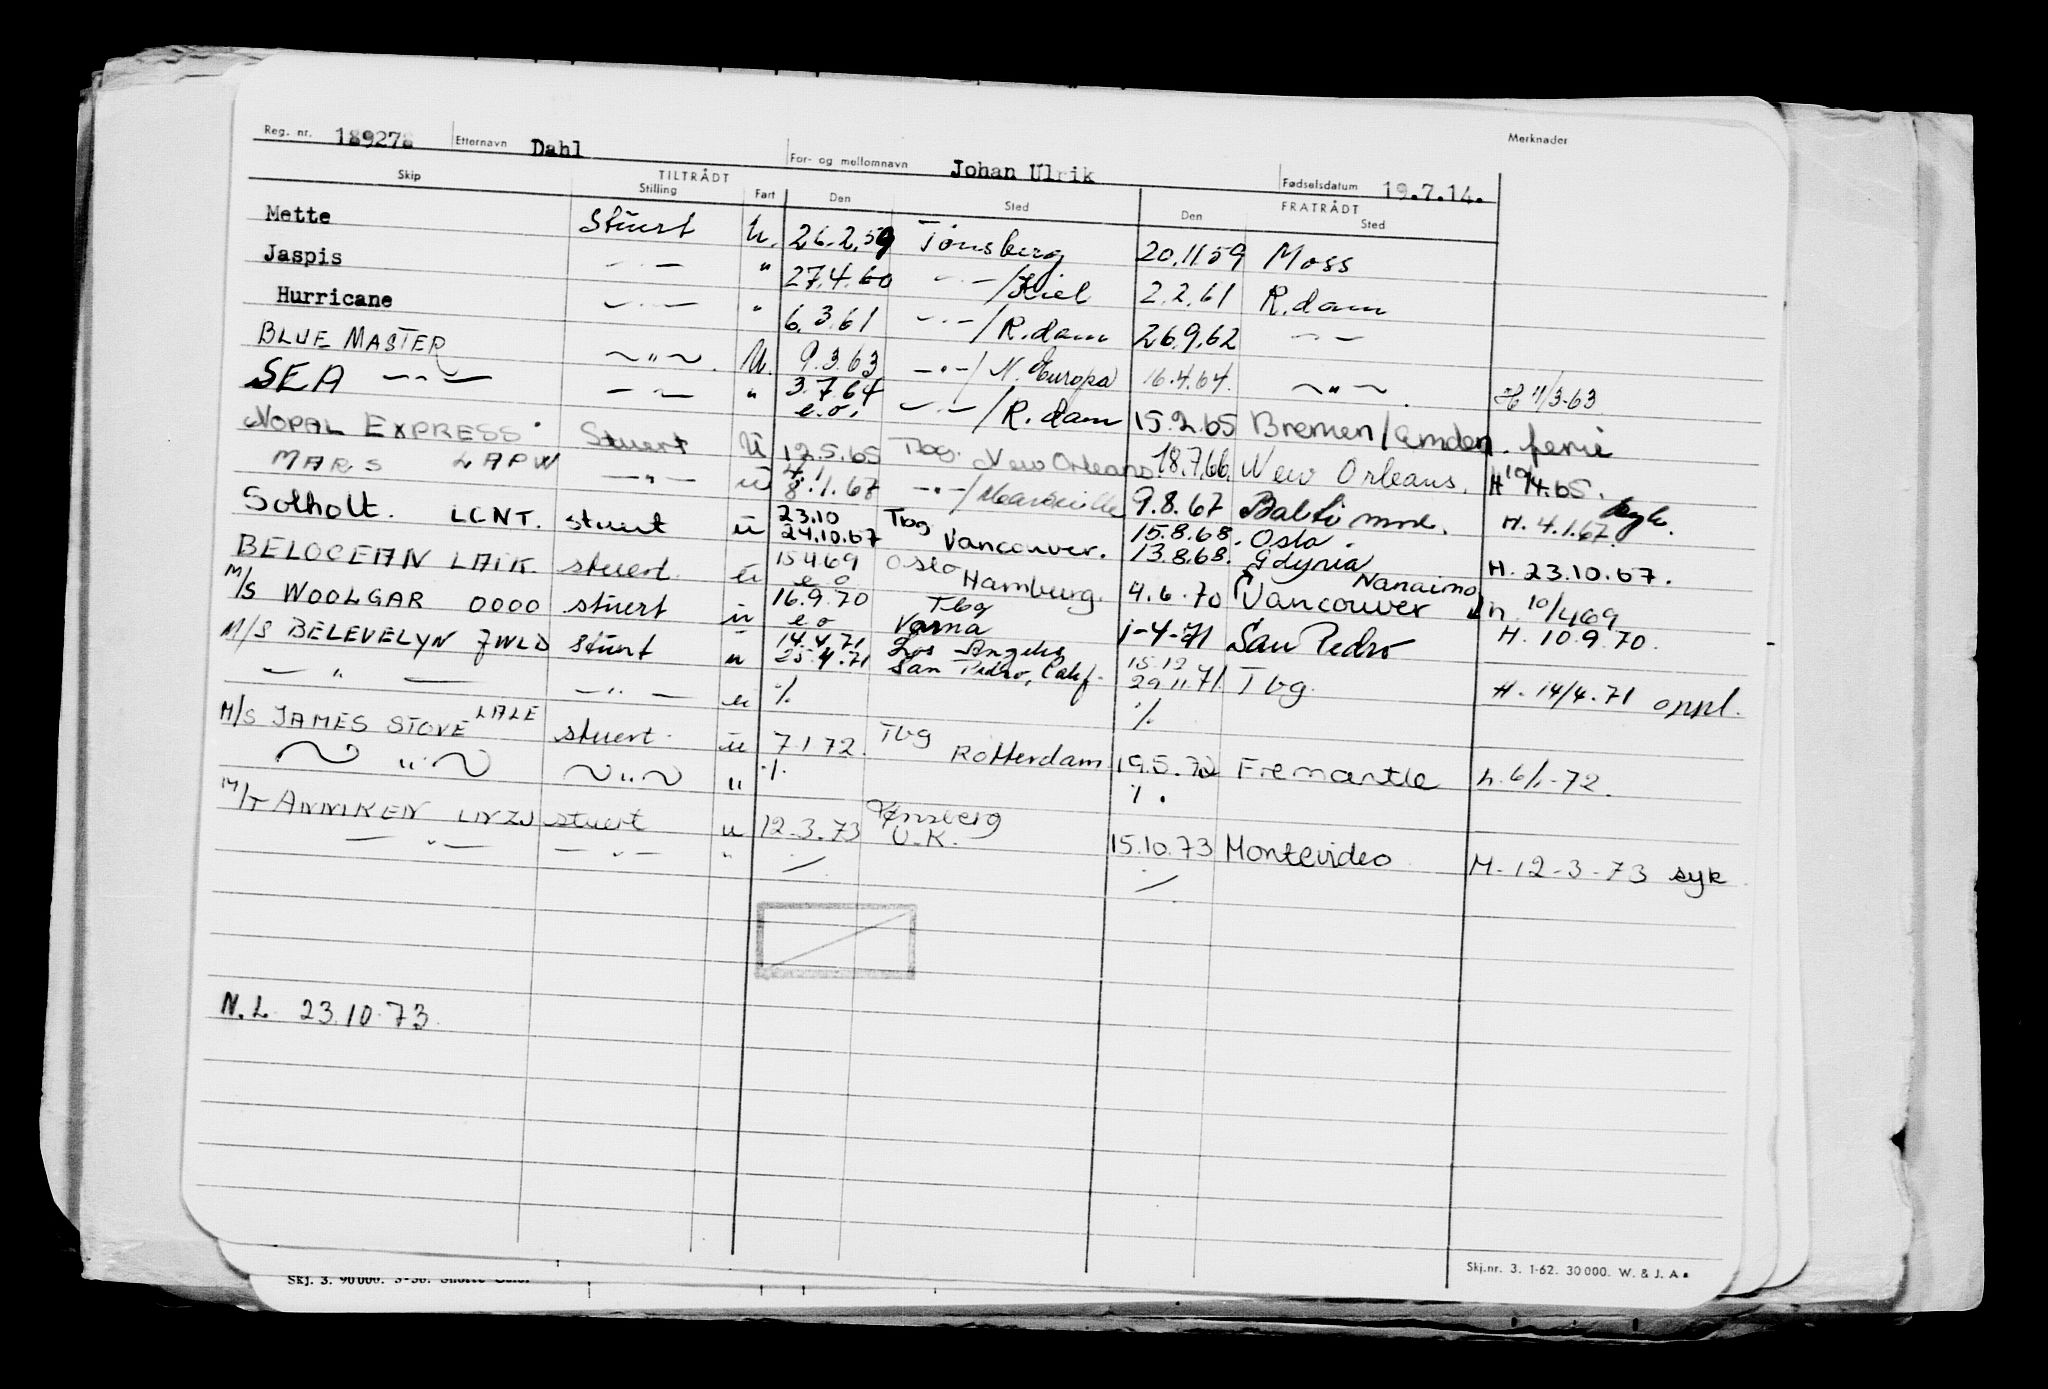 Reg. nr. 189278 Etternavn Dahl For- og mellomnavn Johan Ulrik Fødselsdatum 19.7.14. Merknader
TILTRÅDT FRATRÅDT
Skip Stilling Fart Den Sted Den Sted
Mette Stuert U. 26.2.59 Tønsberg 20.11.59 Moss
Jaspis — " — " 27.4.60 — " — /Kiel 2.2.61 R.dam
Hurricane — " — " 6.3.61 — " — /R.dam 26.9.62 — " —
BLUE MASTER ~ " ~ U. 9.3.63 — " — /N. Europa 16.4.64. ~ " ~ H 11/3-63
SEA — " — — " — " 3.7.64 e.o. — " — /R.dam 15.2.65 Bremen/Emden. ferie
NOPAL EXPRESS Stuert U 12.5.65 Tbg. New Orleans 18.7.66. New Orleans. H 10/4.65.
MARS LAPW — " — u 4.1 8.1.67 — " — /Marseille 9.8.67 Baltimore. H. 4.1.67.
Solholt. LCNT. stuert u 23.10 24.10.67 Tbg Vancouver. 15.8.68. Oslo. 13.8.68. Gdynia H. 23.10.67.
BELOCEAN LAIK stuert u 15469 e o Oslo Hamburg. 4.6.70 Vancouver Nanaimo h. 10/469
M/S WOOLGAR OOOO stuert u 16.9.70 e o Tbg Varna 1-4-71 San Pedro H. 10.9.70.
M/S BELEVELYN JWLD stuert u 14.4.71 25.4.71 Los Angeles San Pedro, Calif. 15.12 29.11.71. Tbg. H. 14/4.71 oppl.
— " — — " — u % %
M/S JAMES STOVE LALE stuert u 7.1.72. Tbg Rotterdam 19.5.72 Fremantle h. 6/1-72.
~ " ~ ~ " ~ " % %.
M/T ANNIKEN LNZJ stuert u 12.3.73 Tønsberg U.K. 15.10.73 Montevideo M-12-3-73 syk
— " — — " — " % %
N.L. 23.10.73.
Skj.nr. 3. 1-62. 30000. W. & J. A.
Skj. 3. 90000.